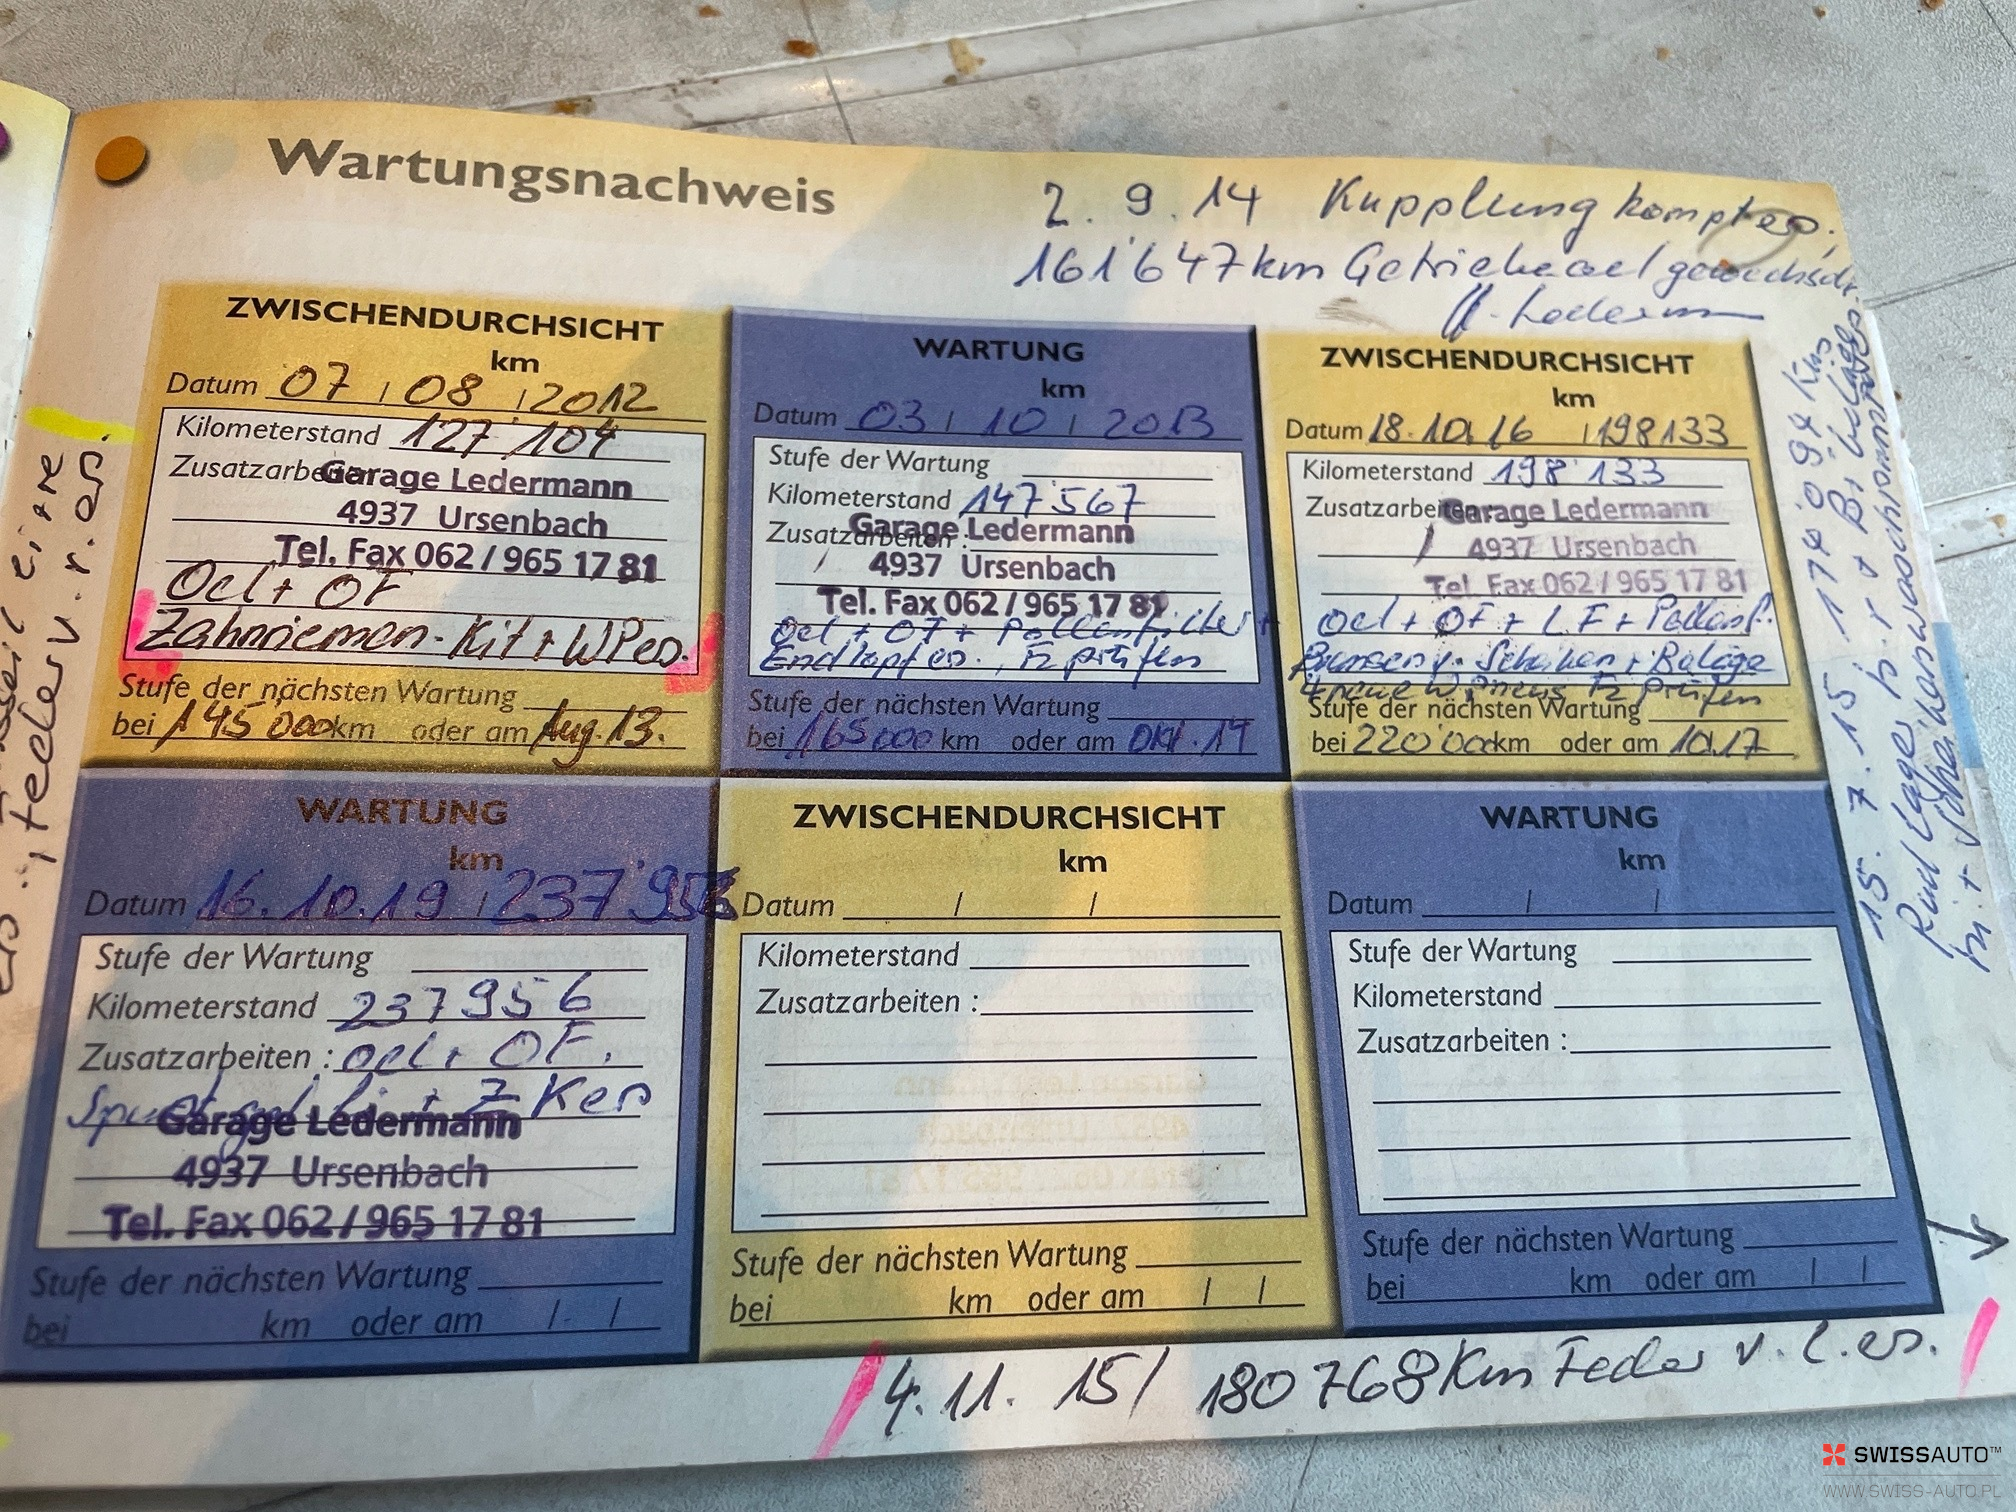 Wartungsnachweis
2. 9. 14 Kupplung
161'647km
ZWISCHENDURCHSICHT
km
Datum 07 / 08 / 2012
Kilometerstand 127'104
Zusatzarbeiten
Garage Ledermann
4937 Ursenbach
Tel. Fax 062 / 965 17 81
Oel + OF
Zahnriemen-Kit + WP es.
Stufe der nächsten Wartung
bei 145 000km oder am Aug. 13.
WARTUNG
km
Datum 03 / 10 / 2013
Stufe der Wartung
Kilometerstand 147'567
Zusatzarbeiten :
Garage Ledermann
4937 Ursenbach
Tel. Fax 062 / 965 17 81
Oel + OF + Pollenfilter +
Endtopf es., Fz prüfen
Stufe der nächsten Wartung
bei 165 000 km oder am Okt. 14
ZWISCHENDURCHSICHT
km
Datum 18.10.16 / 198133
Kilometerstand 198'133
Zusatzarbeiten
Garage Ledermann
4937 Ursenbach
Tel. Fax 062 / 965 17 81
Oel + OF + LF + Pollenf.
Bremsen v. Scheiben + Beläge
4 neue Fz prüfen
Stufe der nächsten Wartung
bei 220'000km oder am 10.17
WARTUNG
km
Datum 16.10.19 / 237'956
Stufe der Wartung
Kilometerstand 237956
Zusatzarbeiten : oel + OF.
+ ZKes
Garage Ledermann
4937 Ursenbach
Tel. Fax 062 / 965 17 81
Stufe der nächsten Wartung
bei km oder am / /
ZWISCHENDURCHSICHT
km
Datum / /
Kilometerstand
Zusatzarbeiten :
Stufe der nächsten Wartung
bei km oder am / /
WARTUNG
km
Datum / /
Stufe der Wartung
Kilometerstand
Zusatzarbeiten :
Stufe der nächsten Wartung
bei km oder am / /
15. 7. 15 174'094 Km
4. 11. 15 / 180768Km Feder v. l. es.
Feder v. r. es.
SWISSAUTO™
WWW.SWISS-AUTO.PL